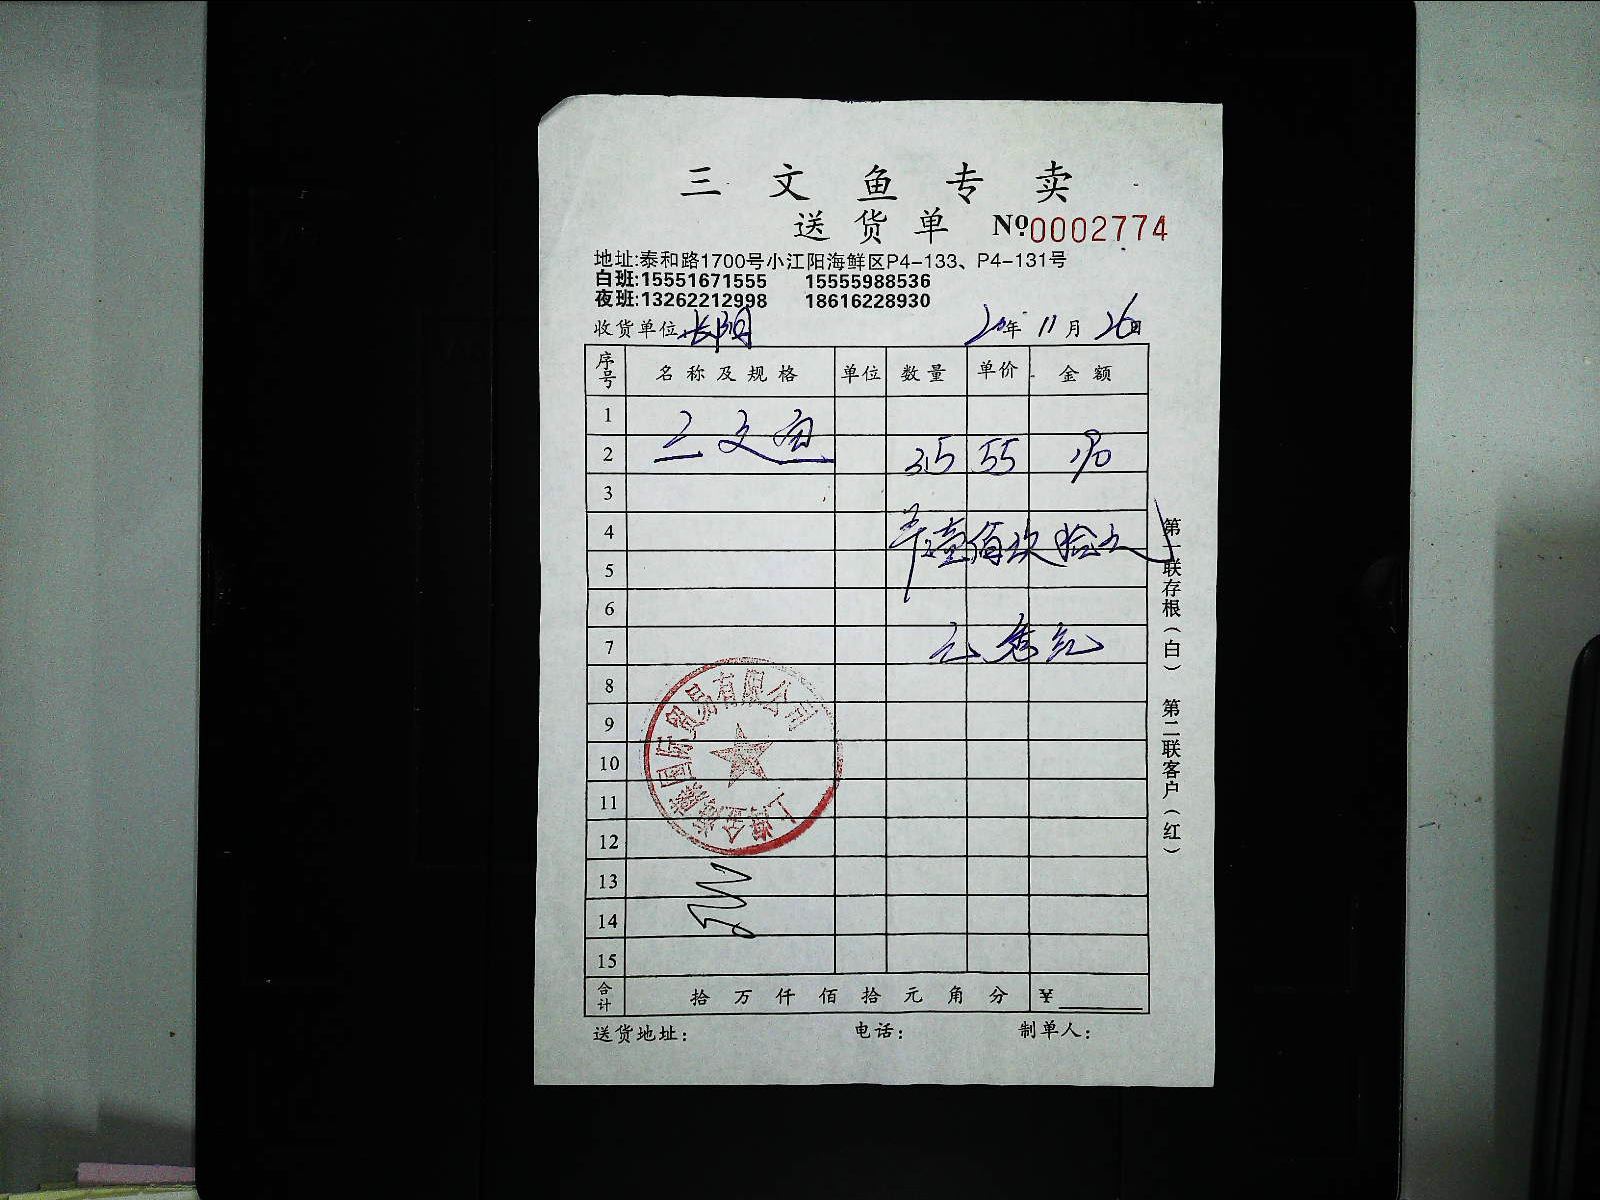 三文鱼专卖
送货单 №0002774
地址:泰和路1700号小江阳海鲜区P4-133、P4-131号
白班:15551671555 15555988536
夜班:13262212998 18616228930
收货单位 长阳 20年 11月 26日
序号 名称及规格 单位 数量 单价 金额
1
2 三文鱼 3.5 55
3
4
5
6
7
8
9
10
11
12
13
14
15
合计 拾 万 仟 佰 拾 元 角 分 ¥
送货地址: 电话: 制单人:
第一联存根(白) 第二联客户(红)
国际贸易有限公司
上海